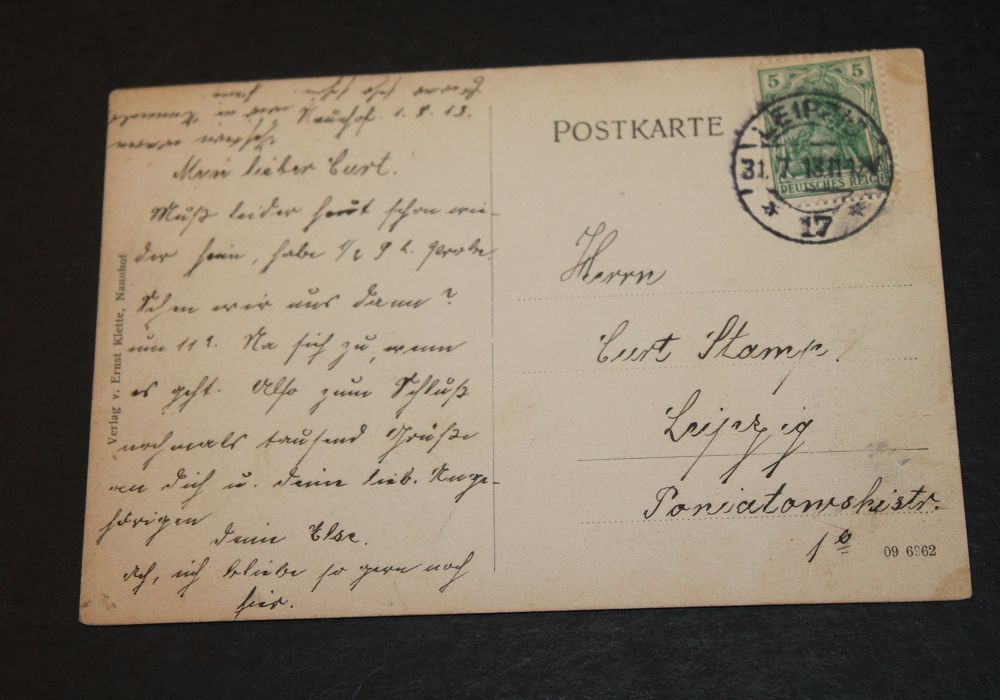 Naunhof. 1.8.13.
Mein lieber Curt.
Muß leider heut schon wie-
der heim, habe 1/2 9 h. Probe.
Sehen wir uns dann?
um 11 h. Na sieh zu, wenn
es geht. Also zum Schluß
nochmals tausend Grüße
an dich u. deine lieb. Ange-
hörigen
deine Else.
Ach, ich bliebe so gern noch
hier.
Verlag v. Ernst Klette, Naunhof
POSTKARTE
5 5
DEUTSCHES REICH
LEIPZIG
31. 7. 13. 11-12V
* 17 *
Herrn
Curt Stamp.
Leipzig
Poniatowskistr.
1 b
09 6962